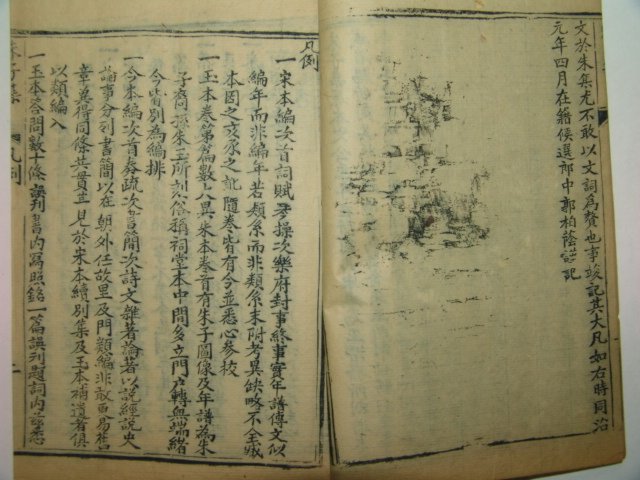 文於朱集尤不敢以文詞為贅也事竣記其大凡如右時同治
元年四月在籍候選郎中郭柏蔭謹記
凡例
一宋本編次首詞賦琴操次樂府封事終事實年譜傳文似
編年而非編年若類系而非類系末附考異缺略不全蛾
本因之亥豕之訛隨卷皆有今並悉心參校
一玉本卷第篇數大異朱本卷首有朱子圖像及年譜為朱
子裔孫朱玉所刻俗稱祠堂本中間多立門戶轉無端緒
今皆別為編排
一今本編次首奏疏次書簡次詩文雜著論著以說經說史
論事分列書簡以在朝外任故里及門類編非敢更易舊
章冀得同條共貫其見於朱本續別集及玉本補遺者俱
以類編入
一玉本答問數十條誤刊書內寫照銘一篇誤列題詞內
朱子集
凡例